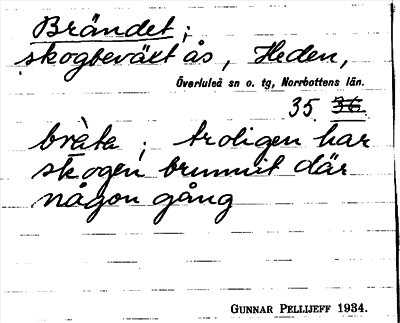 Brändet;
skogbeväxt ås, Heden,
Överluleå sn o. tg, Norrbottens län.
35. 36.
bràta; troligen har
skogen brunnit där
någon gång
GUNNAR PELLIJEFF 1934.